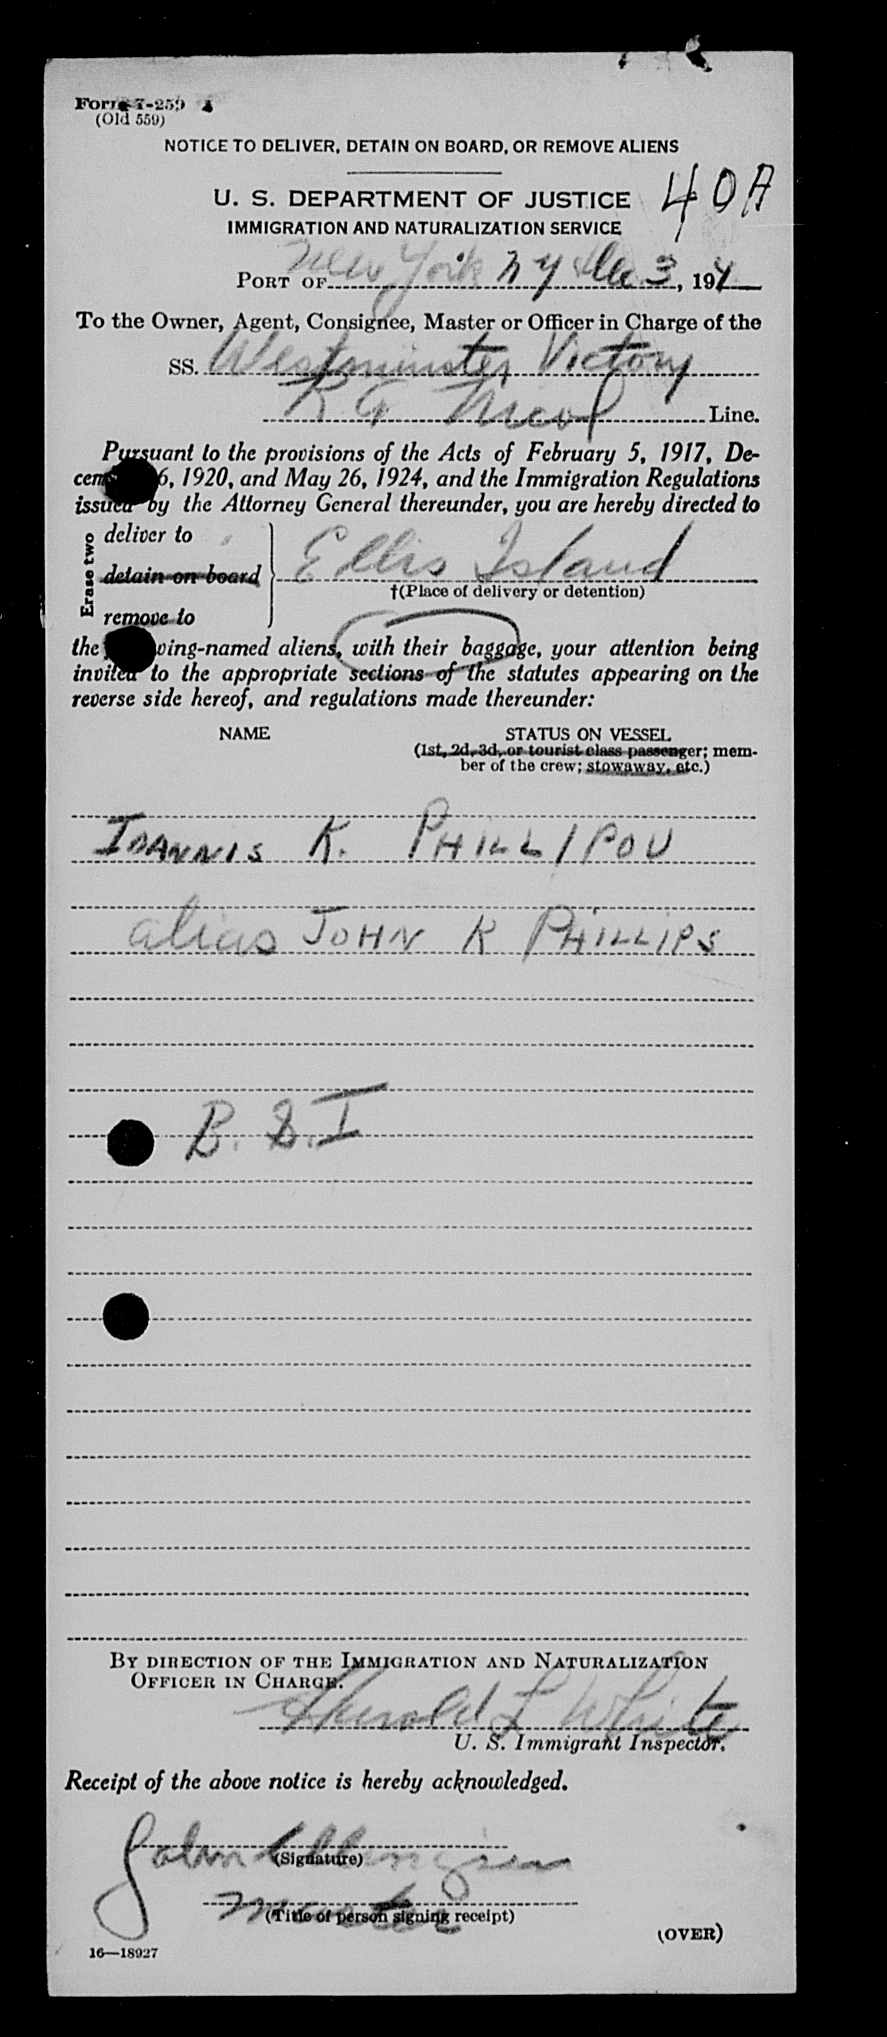 Form I-259
(Old 559)
NOTICE TO DELIVER, DETAIN ON BOARD, OR REMOVE ALIENS
U. S. DEPARTMENT OF JUSTICE 40A
IMMIGRATION AND NATURALIZATION SERVICE
PORT OF New York NY Dec 3, 194
To the Owner, Agent, Consignee, Master or Officer in Charge of the
SS. Westminster Victory
Line.
Pursuant to the provisions of the Acts of February 5, 1917, De-
cem 6, 1920, and May 26, 1924, and the Immigration Regulations
issued by the Attorney General thereunder, you are hereby directed to
Erase two
deliver to
detain on board Ellis Island
†(Place of delivery or detention)
remove to
the wing-named aliens, with their baggage, your attention being
invited to the appropriate sections of the statutes appearing on the
reverse side hereof, and regulations made thereunder:
NAME STATUS ON VESSEL
(1st, 2d, 3d, or tourist class passenger; mem-
ber of the crew; stowaway, etc.)
IOANNIS K. PHILLIPOU
alias JOHN K PHILLIPS
B. S. I
BY DIRECTION OF THE IMMIGRATION AND NATURALIZATION
OFFICER IN CHARGE.
Herold L White
U. S. Immigrant Inspector.
Receipt of the above notice is hereby acknowledged.
John
(Signature)
Master
(Title of person signing receipt)
(OVER)
16—18927